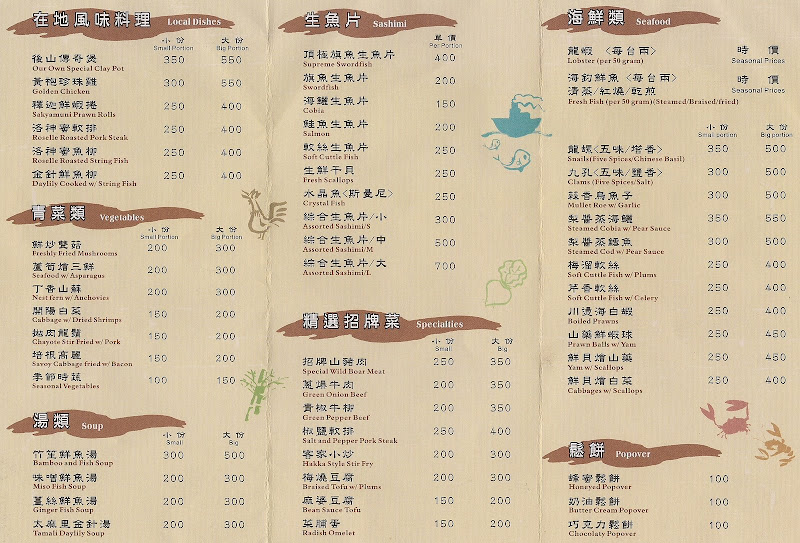 在地風味料理 Local Dishes
小份 大份
Small Portion Big Portion
後山傳奇煲 350 550
Our Own Special Clay Pot
黃袍珍珠雞 300 550
Golden Chicken
釋迦鮮蝦捲 250 400
Sakyamuni Prawn Rolls
洛神蜜軟排 250 400
Roselle Roasted Pork Steak
洛神蜜魚柳 250 400
Roselle Roasted String Fish
金針鮮魚柳 250 400
Daylily Cooked w/ String Fish
青菜類 Vegetables
小份 大份
Small Portion Big Portion
鮮炒雙菇 200 300
Freshly Fried Mushrooms
蘆筍燴三鮮 200 300
Seafood w/ Asparagus
丁香山蘇 200 300
Nest fern w/ Anchovies
開陽白菜 150 200
Cabbage w/ Dried Shrimps
拋肉龍鬚 150 200
Chayote Stir Fried w/ Pork
培根高麗 150 200
Savoy Cabbage fried w/ Bacon
季節時蔬 100 150
Seasonal Vegetables
湯類 Soup
小份 大份
Small Big
竹笙鮮魚湯 300 500
Bamboo and Fish Soup
味噌鮮魚湯 200 300
Miso Fish Soup
薑絲鮮魚湯 200 300
Ginger Fish Soup
太麻里金針湯 200 300
Tamali Daylily Soup
生魚片 Sashimi
單價
Per Portion
頂極旗魚生魚片 400
Supreme Swordfish
旗魚生魚片 200
Swordfish
海鱺生魚片 150
Cobia
鮭魚生魚片 200
Salmon
軟絲生魚片 200
Soft Cuttle Fish
生鮮干貝 200
Fresh Scallops
水晶魚〈斯曼尼〉 250
Crystal Fish
綜合生魚片/小 300
Assorted Sashimi/S
綜合生魚片/中 500
Assorted Sashimi/M
綜合生魚片/大 700
Assorted Sashimi/L
精選招牌菜 Specialties
小份 大份
Small Big
招牌山豬肉 250 350
Special Wild Boar Meat
蔥爆牛肉 200 350
Green Onion Beef
青椒牛柳 200 350
Green Pepper Beef
椒鹽軟排 250 400
Salt and Pepper Pork Steak
客家小炒 200 300
Hakka Style Stir Fry
梅燒豆腐 200 300
Braised Tofu w/ Plums
麻婆豆腐 150 200
Bean Sauce Tofu
菜脯蛋 150 200
Radish Omelet
海鮮類 Seafood
龍蝦〈每台兩〉 時價
Lobster (per 50 gram) Seasonal Prices
海釣鮮魚〈每台兩〉 時價
清蒸/紅燒/乾煎 Seasonal Prices
Fresh Fish (per 50 gram)(Steamed/Braised/fried)
小份 大份
Small portion Big portion
龍螺〈五味/塔香〉 350 500
Snails(Five Spices/Chinese Basil)
九孔〈五味/鹽香〉 300 500
Clams (Five Spices/Salt)
蒜香烏魚子 300 500
Mullet Roe w/ Garlic
梨醬蒸海鱺 350 550
Steamed Cobia w/ Pear Sauce
梨醬蒸鱈魚 300 500
Steamed Cod w/ Pear Sauce
梅溜軟絲 250 400
Soft Cuttle Fish w/ Plums
芹香軟絲 250 400
Soft Cuttle Fish w/ Celery
川燙海白蝦 250 400
Boiled Prawns
山藥鮮蝦球 250 450
Prawn Balls w/ Yam
鮮貝燴山藥 250 450
Yam w/ Scallops
鮮貝燴白菜 250 400
Cabbages w/ Scallops
鬆餅 Popover
蜂蜜鬆餅 100
Honeyed Popover
奶油鬆餅 100
Butter Cream Popover
巧克力鬆餅 100
Chocolaty Popover